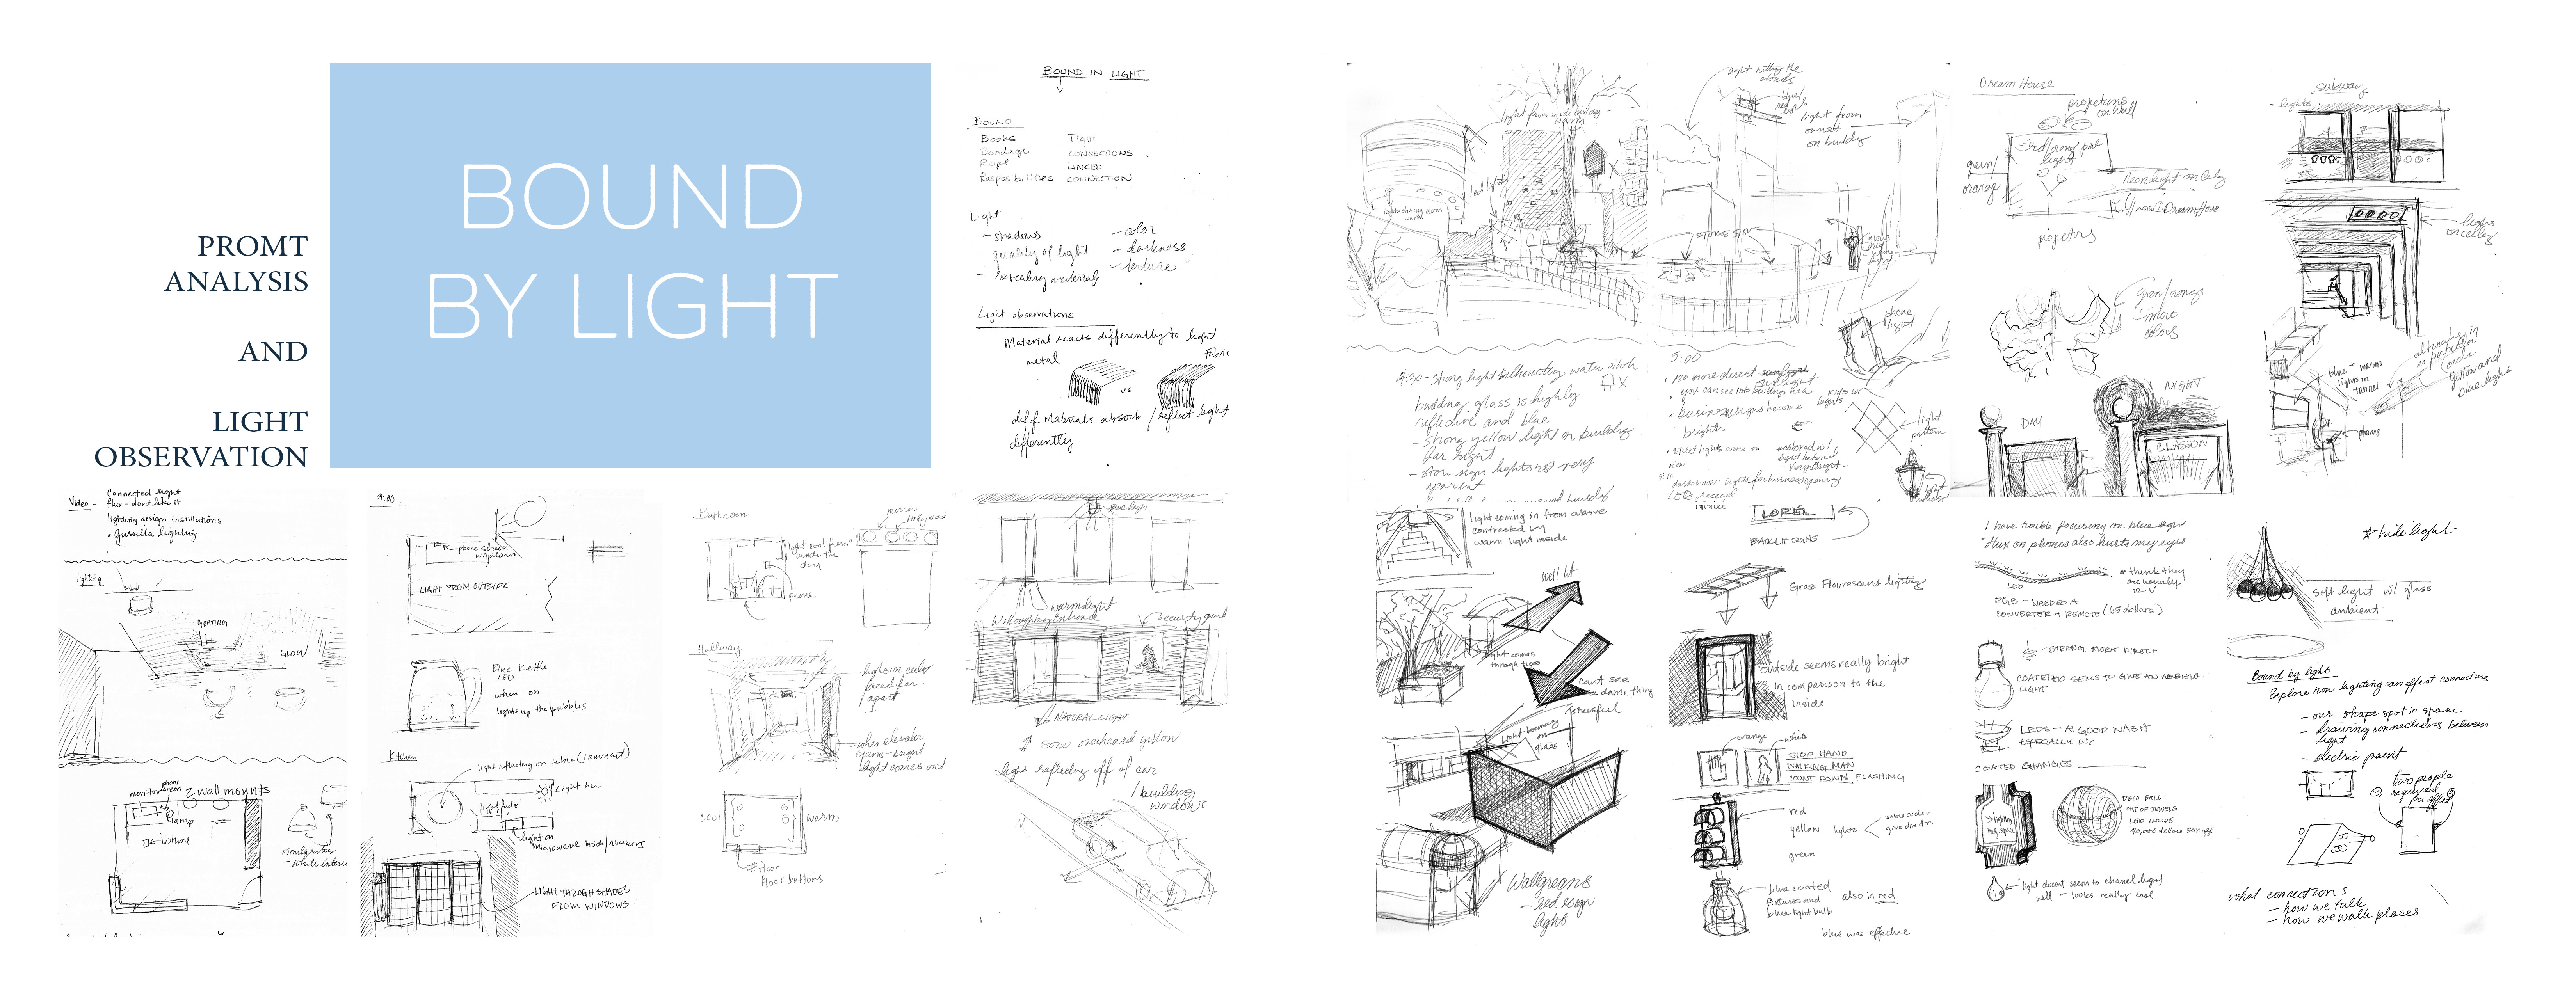 PROMT
ANALYSIS
AND
LIGHT
OBSERVATION
BOUND
BY LIGHT
BOUND IN LIGHT
BOUND
Books
Bondage
Rope
Resposibilities
TIGHT
CONNECTIONS
LINCED
CONNECTION
Light
- shadows
quality of light
- revealing materials
- color
- darkness
- texture
Light observations
Material reacts differently to light
metal
vs
Fabric
diff materials absorb / reflect light
differently
Video -
Connected light
flux - dont like it
lighting design instillations
lighting
GRATING
GLOW
phone
monitor screen
2 wall mounts
lamp
iphone
9:00
phone screen
w/alarm
LIGHT FROM OUTSIDE
Blue Kettle
LED
when on
lights up the bubbles
Kitchen
light reflecting on table (laminant)
light on
microwave inside/numbers
LIGHT THROUGH SHADES
FROM WINDOWS
Bathroom
mirror
phone
Hallway
lights on ceiling
placed far
apart
when elevator
opens - bright
light comes out
cool
warm
# floor
floor buttons
blue light
warm light
Willoughby Entrance
security guard
NATURAL LIGHT
some overheard yellow
light reflecting off of car
/ building
windows
light from inside buildings
warm
lights shining down
warm
4:30 - strong light silhouetting water
building glass is highly
reflective and blue
- strong yellow light on building
far right
- store sign lights not very
apparent
light hitting the
clouds
blue/
red
light from
sunset
on building
STORE SIGN
phone
light
5:00
no more direct sunlight
you can see into buildings now
business signs become
brighter
street lights come on
now
- Very Bright -
light
pattern
Dream House
projections
on wall
green/
orange
Neon light on
Dream House
projectors
green/oranges
+ more
colors
DAY
NIGHT
CLASSON
subway
- lights
lights
on ceiling
blue + warm
lights in
tunnel
alternates in
no particular
order
yellow and
blue lights
phones
light coming in from above
contrasted by
warm light inside
light comes
through trees
well lit
cant see
a damn thing
stressful
light
on
glass
Wallgreens
- red sign
light
LOREL
BACKLIT SIGNS
Gross Flourescent lighting
outside seems really bright
in comparison to the
inside
orange
white
STOP HAND
WALKING MAN
COUNT DOWN FLASHING
red
yellow
green
lights
same order
give direction
blue coated
fixtures and
blue light bulb
also in red
blue was effective
I have trouble focusing on blue signs
Flux on phones also hurts my eyes
LED
* think they
are usually
12 V
RGB - NEEDED A
CONVERTER + REMOTE (65 dollars)
- STRONG MORE DIRECT
COATETED SEEMS TO GIVE AN AMBIENT
LIGHT
LEDS - A GOOD WASH
COATED CHANGES
DISCO BALL
OUT OF JEWELS
LED INSIDE
light doesnt seem to chanel light
well - looks really cool
* hide light
soft light w/ glass
ambient
Bound by light
Explore how lighting can effect connections
- our shape spot in space
- drawing connections between
light
- electric paint
two people
required
for effect
what connections
- how we talk
- how we walk places